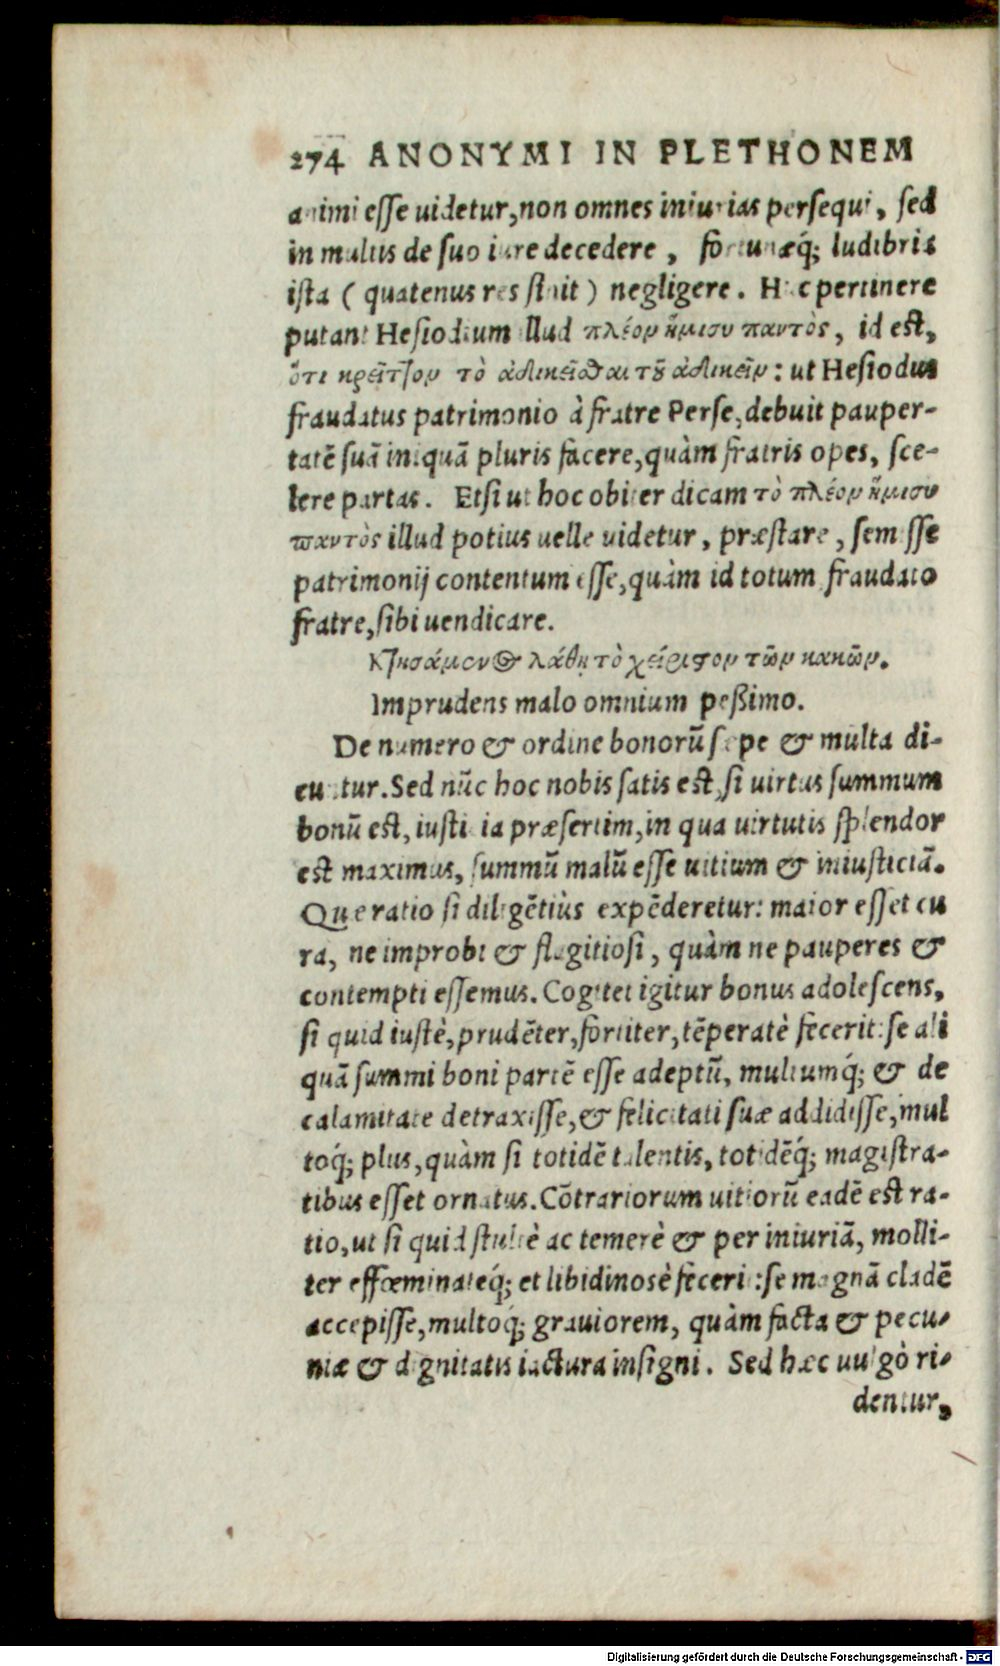 274 ANONYMI IN PLETHONEM
animi esse uidetur, non omnes iniurias persequi, sed
in multis de suo iure decedere, fortunæq́; ludibria
ista (quatenus res sinit) negligere. Huc pertinere
putant Hesiodium illud πλέον ἥμισυ παντὸς, id est,
ὅτι κρεῖττον τὸ ἀδικεῖσθαι τοῦ ἀδικεῖν: ut Hesiodus
fraudatus patrimonio à fratre Perse, debuit pauper-
tatē suā iniquā pluris facere, quàm fratris opes, sce-
lere partas. Etsi ut hoc obiter dicam τὸ πλέον ἥμισυ
παντὸς illud potius uelle uidetur, præstare, semisse
patrimonij contentum esse, quàm id totum fraudato
fratre, sibi uendicare.
Κτησάμενος λάθῃ τὸ χείριστον τῶν κακῶν.
Imprudens malo omnium peßimo.
De numero & ordine bonorū sæpe & multa di-
cuntur. Sed nūc hoc nobis satis est, si uirtus summum
bonū est, iusticia præsertim, in qua uirtutis splendor
est maximus, summū malū esse uitium & iniusticiā.
Que ratio si diligētiùs expēderetur: maior esset cu
ra, ne improbi & flagitiosi, quàm ne pauperes &
contempti essemus. Cogitet igitur bonus adolescens,
si quid iustè, prudēter, fortiter, tēperatè fecerit: se ali
quā summi boni partē esse adeptū, multumq́; & de
calamitate detraxisse, & felicitati suæ addidisse, mul
toq́; plus, quàm si totidē talentis, totidēq́; magistra-
tibus esset ornatus. Cōtrariorum uitiorū eadē est ra-
tio, ut si quid stultè ac temerè & per iniuriā, molli-
ter effœminateq́; et libidinosè fecerit: se magnā cladē
accepisse, multoq́; grauiorem, quàm facta & pecu-
niæ & dignitatis iactura insigni. Sed hæc uulgò ri-
dentur,
Digitalisierung gefördert durch die Deutsche Forschungsgemeinschaft - DFG